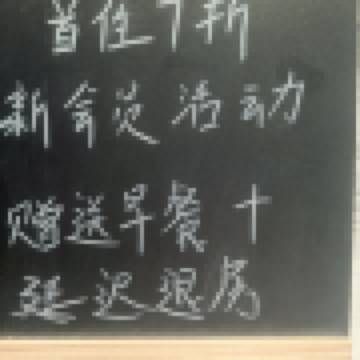 首住7折
新会员活动
赠送早餐十
延迟退房